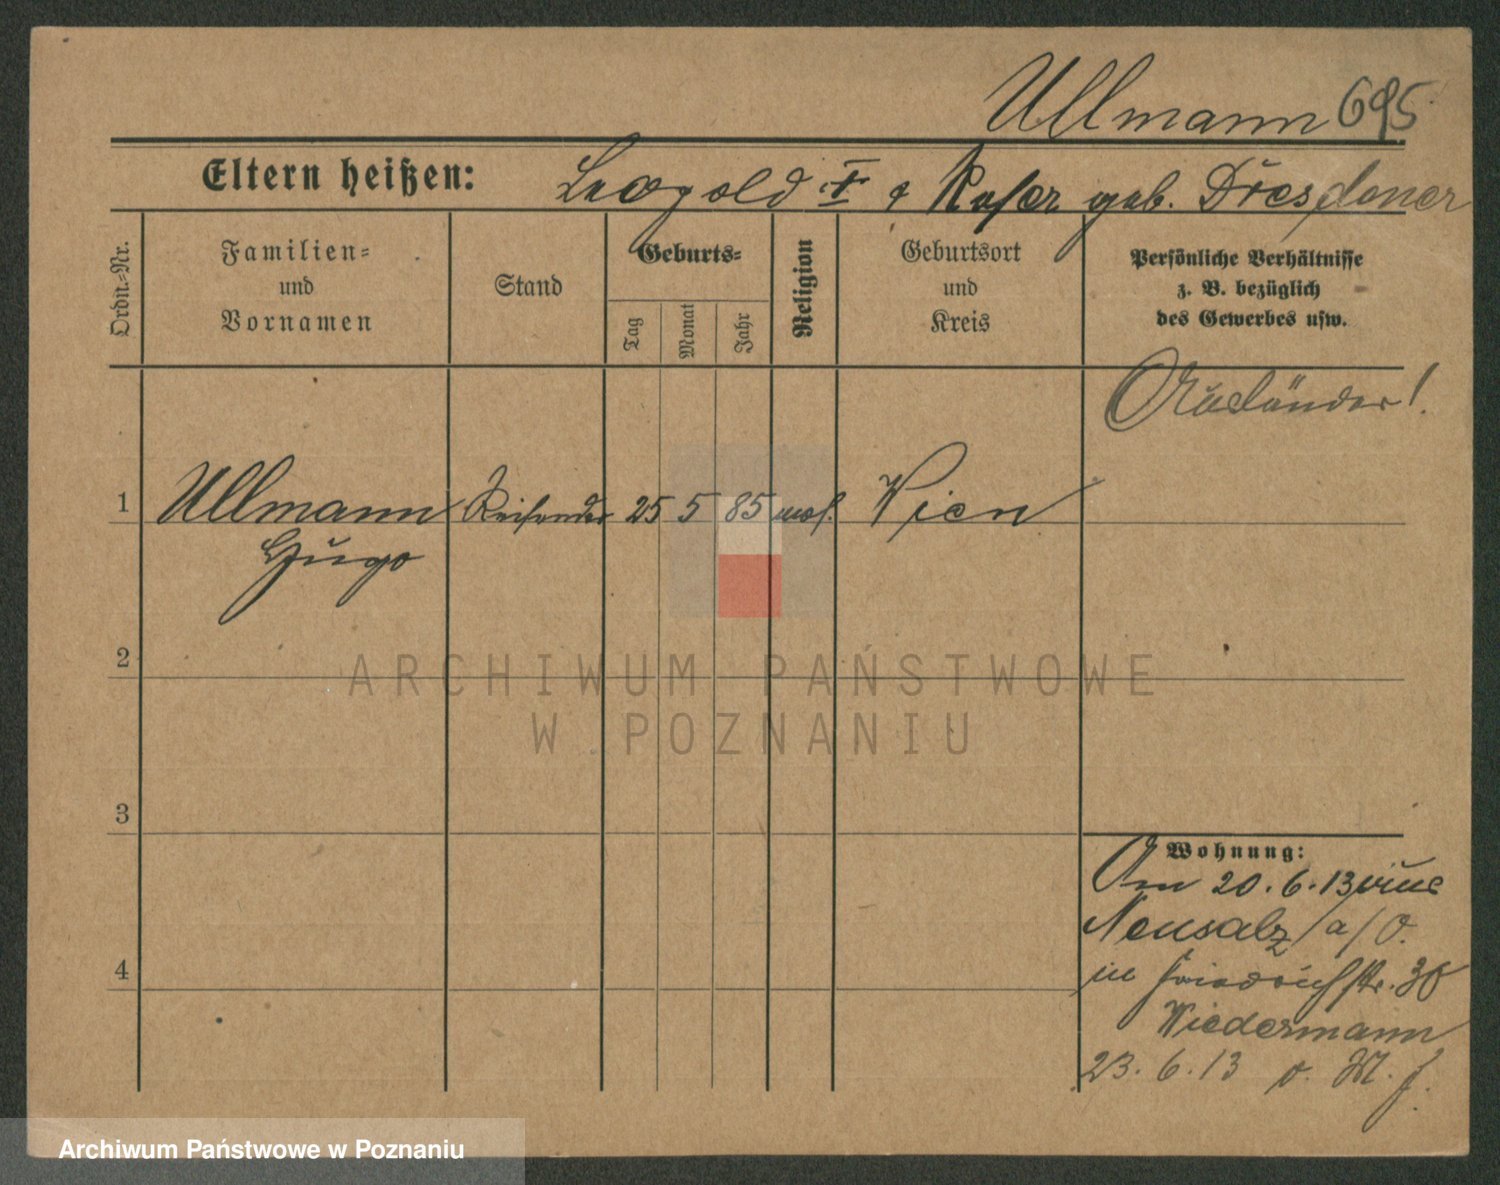 Ullmann 695
Eltern heißen: Leopold I. & Rosa geb. Dresdoner
Ordn.-Nr.
Familien-
und
Vornamen
Stand
Geburts-
Tag
Monat
Jahr
Religion
Geburtsort
und
Kreis
Persönliche Verhältnisse
z. B. bezüglich
des Gewerbes usw.
Ausländer!
1 Ullmann Reisender 25 5 85 mos. Wien
Hugo
2
3
4
Wohnung:
Am 20.6.13 aus
Neusalz a/O.
in Friedrichstr. 30
Wiedermann
23.6.13
ARCHIWUM PAŃSTWOWE
W POZNANIU
Archiwum Państwowe w Poznaniu